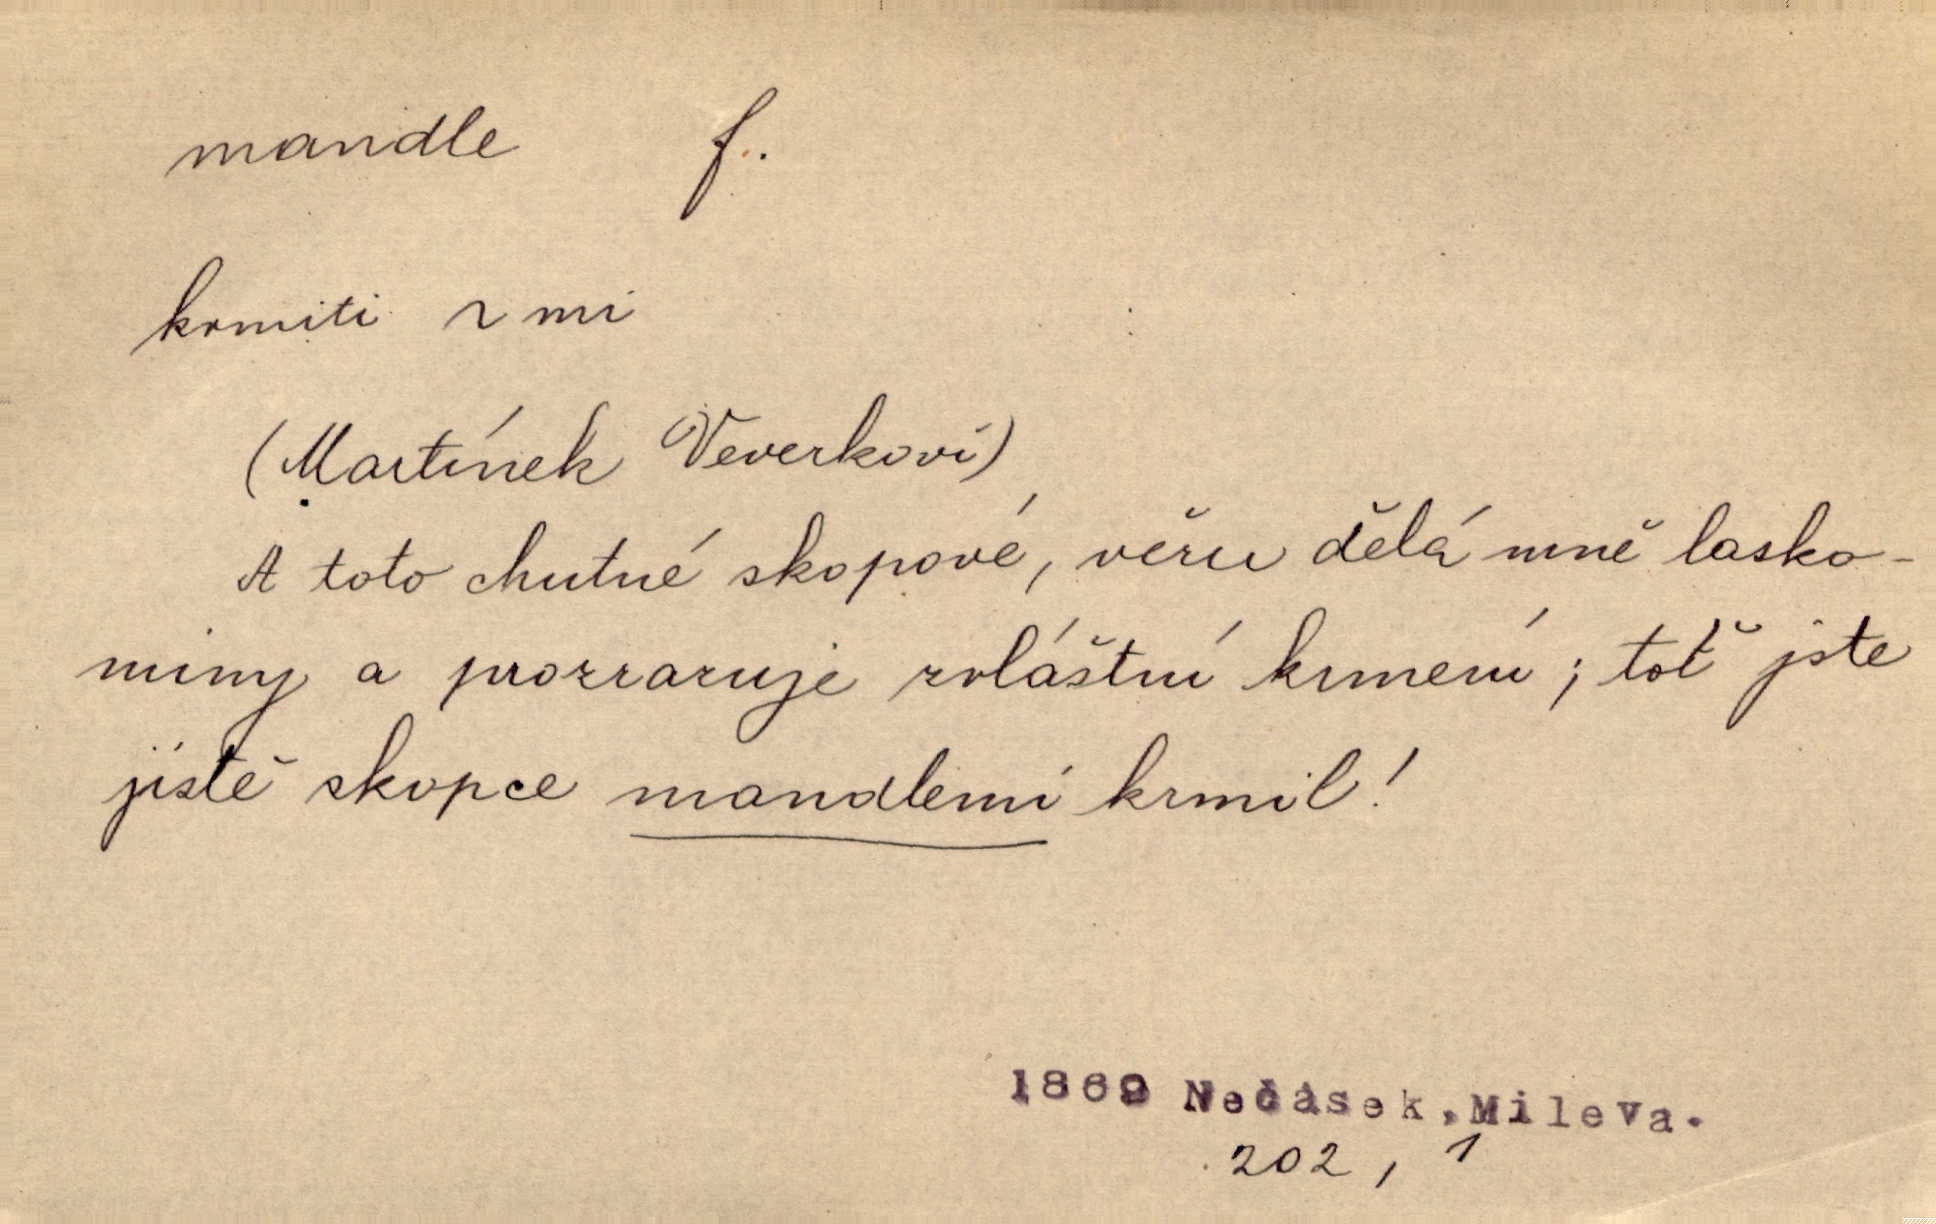 mandle f.
krmiti ~ mi
(Martínek Veverkovi)
A toto chutné skopové, věru dělá mně lasko-
miny a prozrazuje zvláštní krmení; toť jste
jistě skopce mandlemi krmil!
1869 Nečásek, Mileva.
202, 1